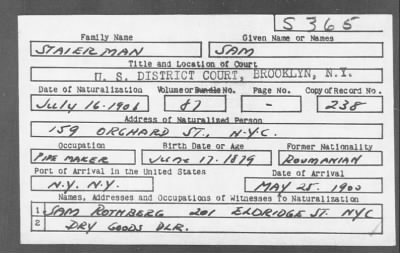 S 365
Family Name Given Name or Names
STAIERMAN SAM
Title and Location of Court
U. S. DISTRICT COURT, BROOKLYN, N.Y.
Date of Naturalization Volume or Bundle No. Page No. Copy of Record No.
July 16-1906 87 - 238
Address of Naturalized Person
159 ORCHARD ST., N.Y.C.
Occupation Birth Date or Age Former Nationality
PIPE MAKER JUNE 17-1879 ROUMANIAN
Port of Arrival in the United States Date of Arrival
N.Y. N.Y. MAY 25. 1900
Names, Addresses and Occupations of Witnesses To Naturalization
1 SAM ROTHBERG 201 ELDRIDGE ST. NYC
2 DRY GOODS DLR.